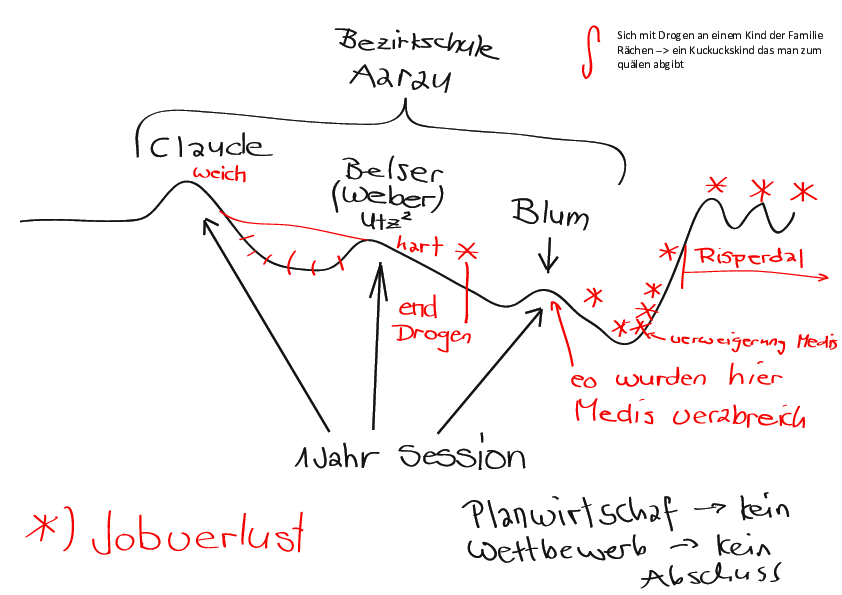 Bezirkschule
Aarau
Sich mit Drogen an einem Kind der Familie
Rächen --> ein Kuckuckskind das man zum
quälen abgibt
Claude
weich
Belser
(Weber)
Utz²
Blum
hart *
end
Drogen
Risperdal
verweigerung Medis
eo wurden hier
Medis verabreich
1 Jahr Session
*) Jobverlust
Planwirtschaf → kein
Wettbewerb → kein
Abschuss